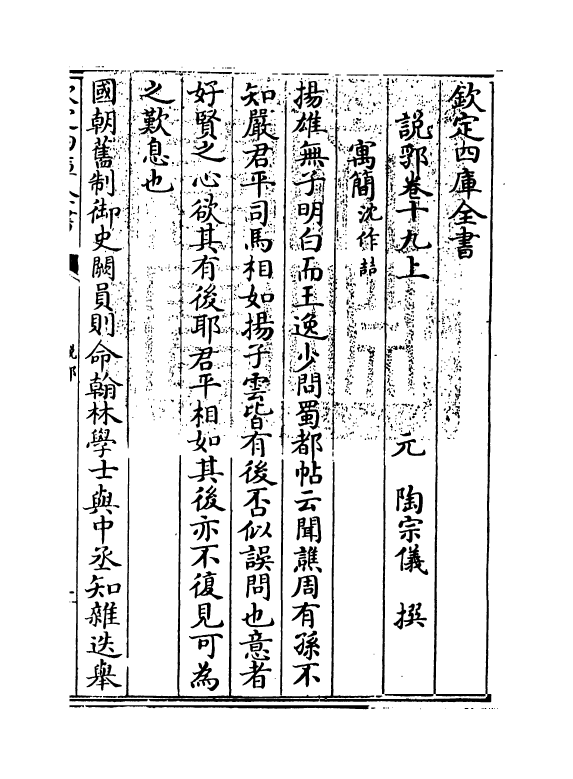 欽定四庫全書
說郛卷十九上　元　陶宗儀　撰
寓簡沈作喆
揚雄無子明白而王逸少問蜀都帖云聞譙周有孫不
知嚴君平司馬相如揚子雲皆有後否似誤問也意者
好賢之心欲其有後耶君平相如其後亦不復見可為
之歎息也
國朝舊制御史闕員則命翰林學士與中丞知雜迭舉